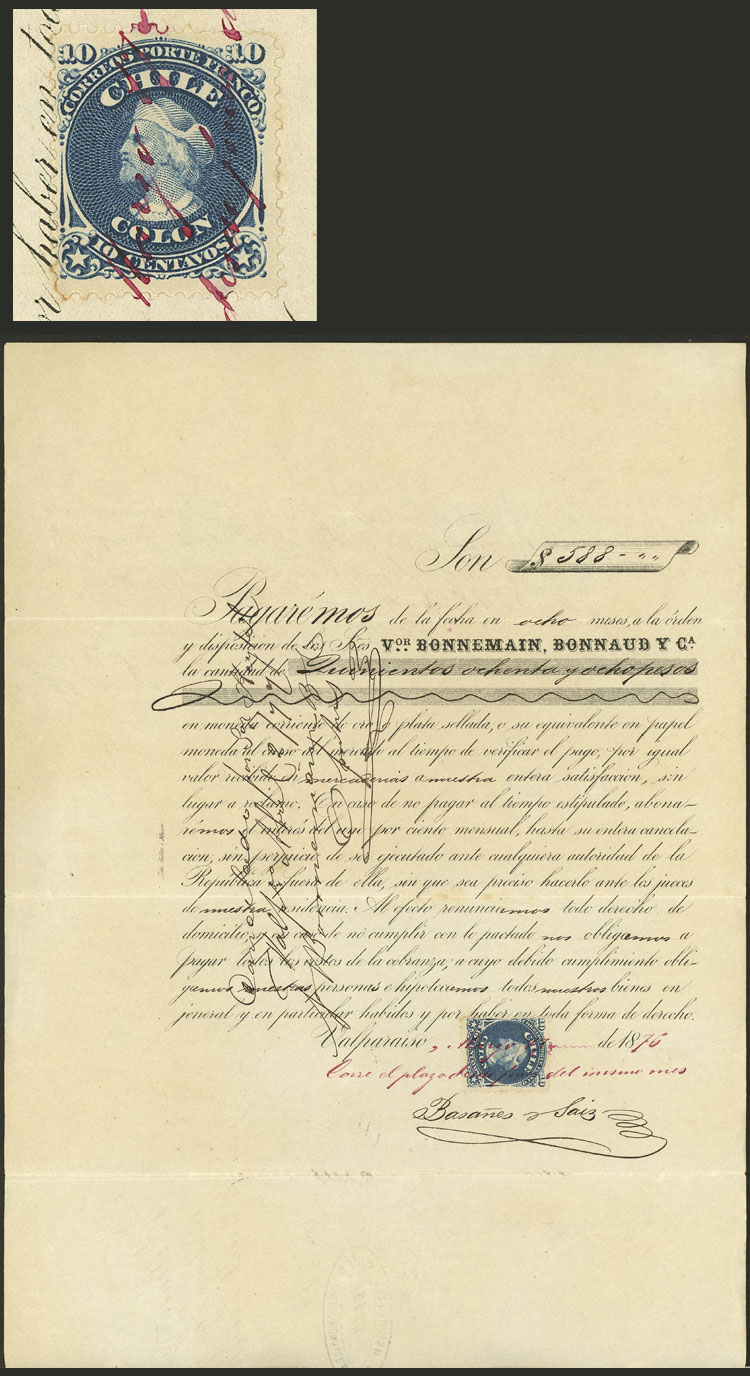 10 10
CORREOS PORTE FRANCO
CHILE
COLON
10 CENTAVOS
haber en
Son $ 588-""
Pagarémos de la fecha en ocho meses, a la órden
y disposicion de los Sres. Vor. BONNEMAIN, BONNAUD Y Ca.
la cantidad de Quinientos ochenta y ocho pesos
en moneda corriente de oro o plata sellada, o su equivalente en papel
moneda al curso del mercado al tiempo de verificar el pago, por igual
valor recibido en mercaderias a nuestra entera satisfaccion, sin
lugar a reclamo. En caso de no pagar al tiempo estipulado, abona-
rémos el interés del uno por ciento mensual, hasta su entera cancela-
cion, sin perjuicio de ser ejecutado ante cualquera autoridad de la
República o fuera de ella, sin que sea preciso hacerlo ante los jueces
de nuestra residencia. Al efecto renunciamos todo derecho de
domicilio y en caso de no cumplir con lo pactado nos obligamos a
pagar todos los costos de la cobranza; a cuyo debido cumplimiento obli-
gamos nuestras personas e hipotecamos todos nuestros bienes en
jeneral y en particular habidos y por haber en toda forma de derecho.
Valparaiso, Marzo de 1876
Corre el plazo desde del mismo mes
10 10
CHILE
COLON
Basañes y Saiz